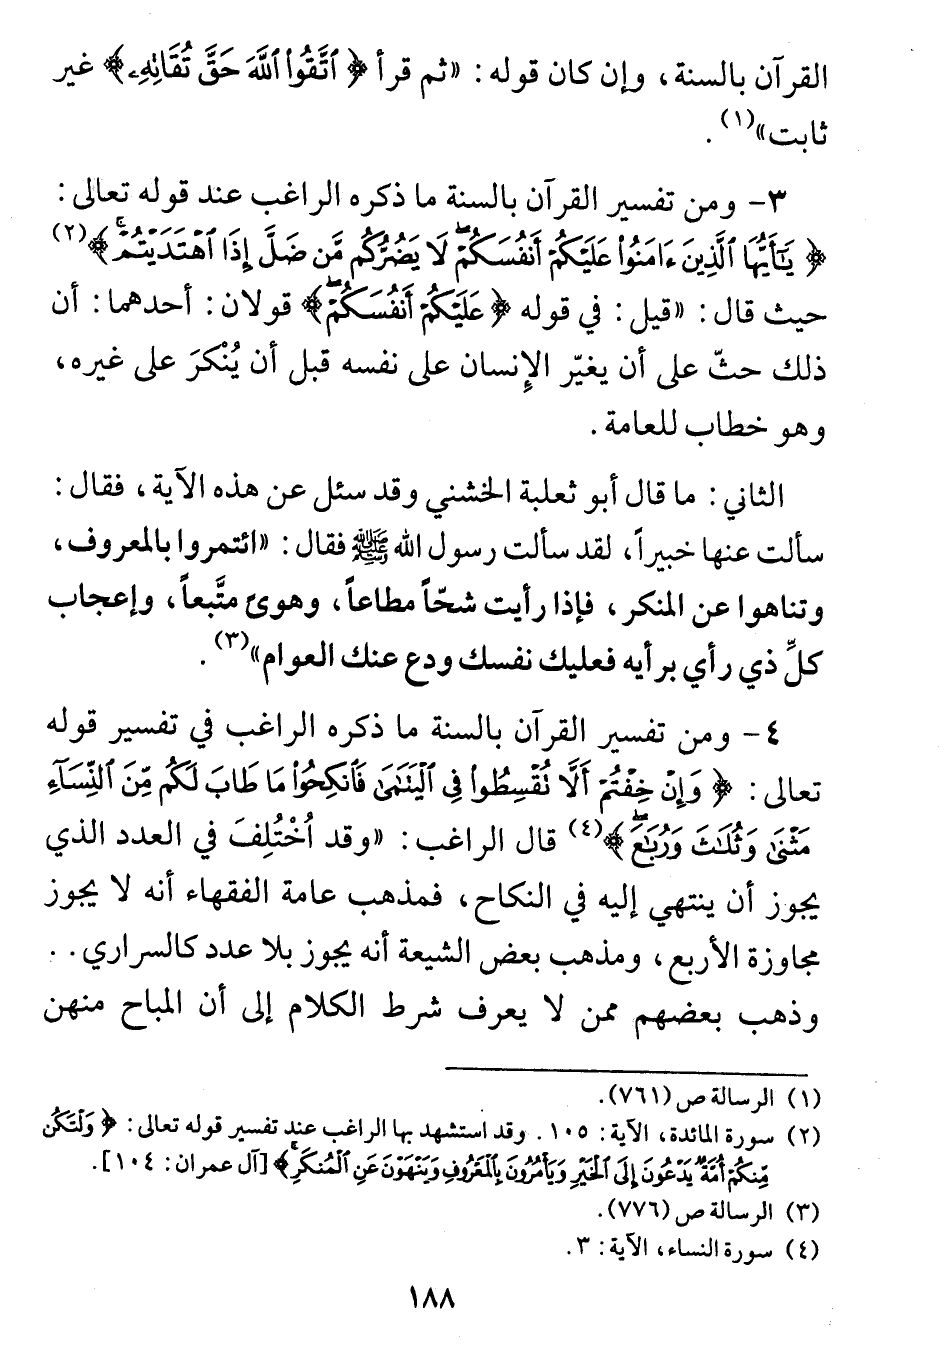 القرآن بالسنة، وإن كان قوله: «ثم قرأ ﴿ ٱتَّقُوا۟ ٱللَّهَ حَقَّ تُقَاتِهِۦ ﴾ غير
ثابت»(١).
٣- ومن تفسير القرآن بالسنة ما ذكره الراغب عند قوله تعالى:
﴿ يَٰٓأَيُّهَا ٱلَّذِينَ ءَامَنُوا۟ عَلَيْكُمْ أَنفُسَكُمْ ۖ لَا يَضُرُّكُم مَّن ضَلَّ إِذَا ٱهْتَدَيْتُمْ ۚ ﴾(٢)
حيث قال: «قيل: في قوله ﴿ عَلَيْكُمْ أَنفُسَكُمْ ۖ ﴾ قولان: أحدهما: أن
ذلك حثّ على أن يغيّر الإنسان على نفسه قبل أن يُنْكرَ على غيره،
وهو خطاب للعامة.
الثاني: ما قال أبو ثعلبة الخشني وقد سئل عن هذه الآية، فقال:
سألت عنها خبيراً، لقد سألت رسول الله ﷺ فقال: «ائتمروا بالمعروف،
وتناهوا عن المنكر، فإذا رأيت شحّاً مطاعاً، وهوى متَّبعاً، وإعجاب
كلِّ ذي رأي برأيه فعليك نفسك ودع عنك العوام»(٣).
٤- ومن تفسير القرآن بالسنة ما ذكره الراغب في تفسير قوله
تعالى: ﴿ وَإِنْ خِفْتُمْ أَلَّا تُقْسِطُوا۟ فِى ٱلْيَتَٰمَىٰ فَٱنكِحُوا۟ مَا طَابَ لَكُم مِّنَ ٱلنِّسَآءِ
مَثْنَىٰ وَثُلَٰثَ وَرُبَٰعَ ۖ ﴾(٤) قال الراغب: «وقد اُخْتُلِفَ في العدد الذي
يجوز أن ينتهي إليه في النكاح، فمذهب عامة الفقهاء أنه لا يجوز
مجاوزة الأربع، ومذهب بعض الشيعة أنه يجوز بلا عدد كالسراري..
وذهب بعضهم ممن لا يعرف شرط الكلام إلى أن المباح منهن
(١) الرسالة ص (٧٦١).
(٢) سورة المائدة، الآية: ١٠٥. وقد استشهد بها الراغب عند تفسير قوله تعالى: ﴿ وَلْتَكُن
مِّنكُمْ أُمَّةٌ يَدْعُونَ إِلَى ٱلْخَيْرِ وَيَأْمُرُونَ بِٱلْمَعْرُوفِ وَيَنْهَوْنَ عَنِ ٱلْمُنكَرِ ۚ ﴾ [آل عمران: ١٠٤].
(٣) الرسالة ص (٧٧٦).
(٤) سورة النساء، الآية: ٣.
١٨٨